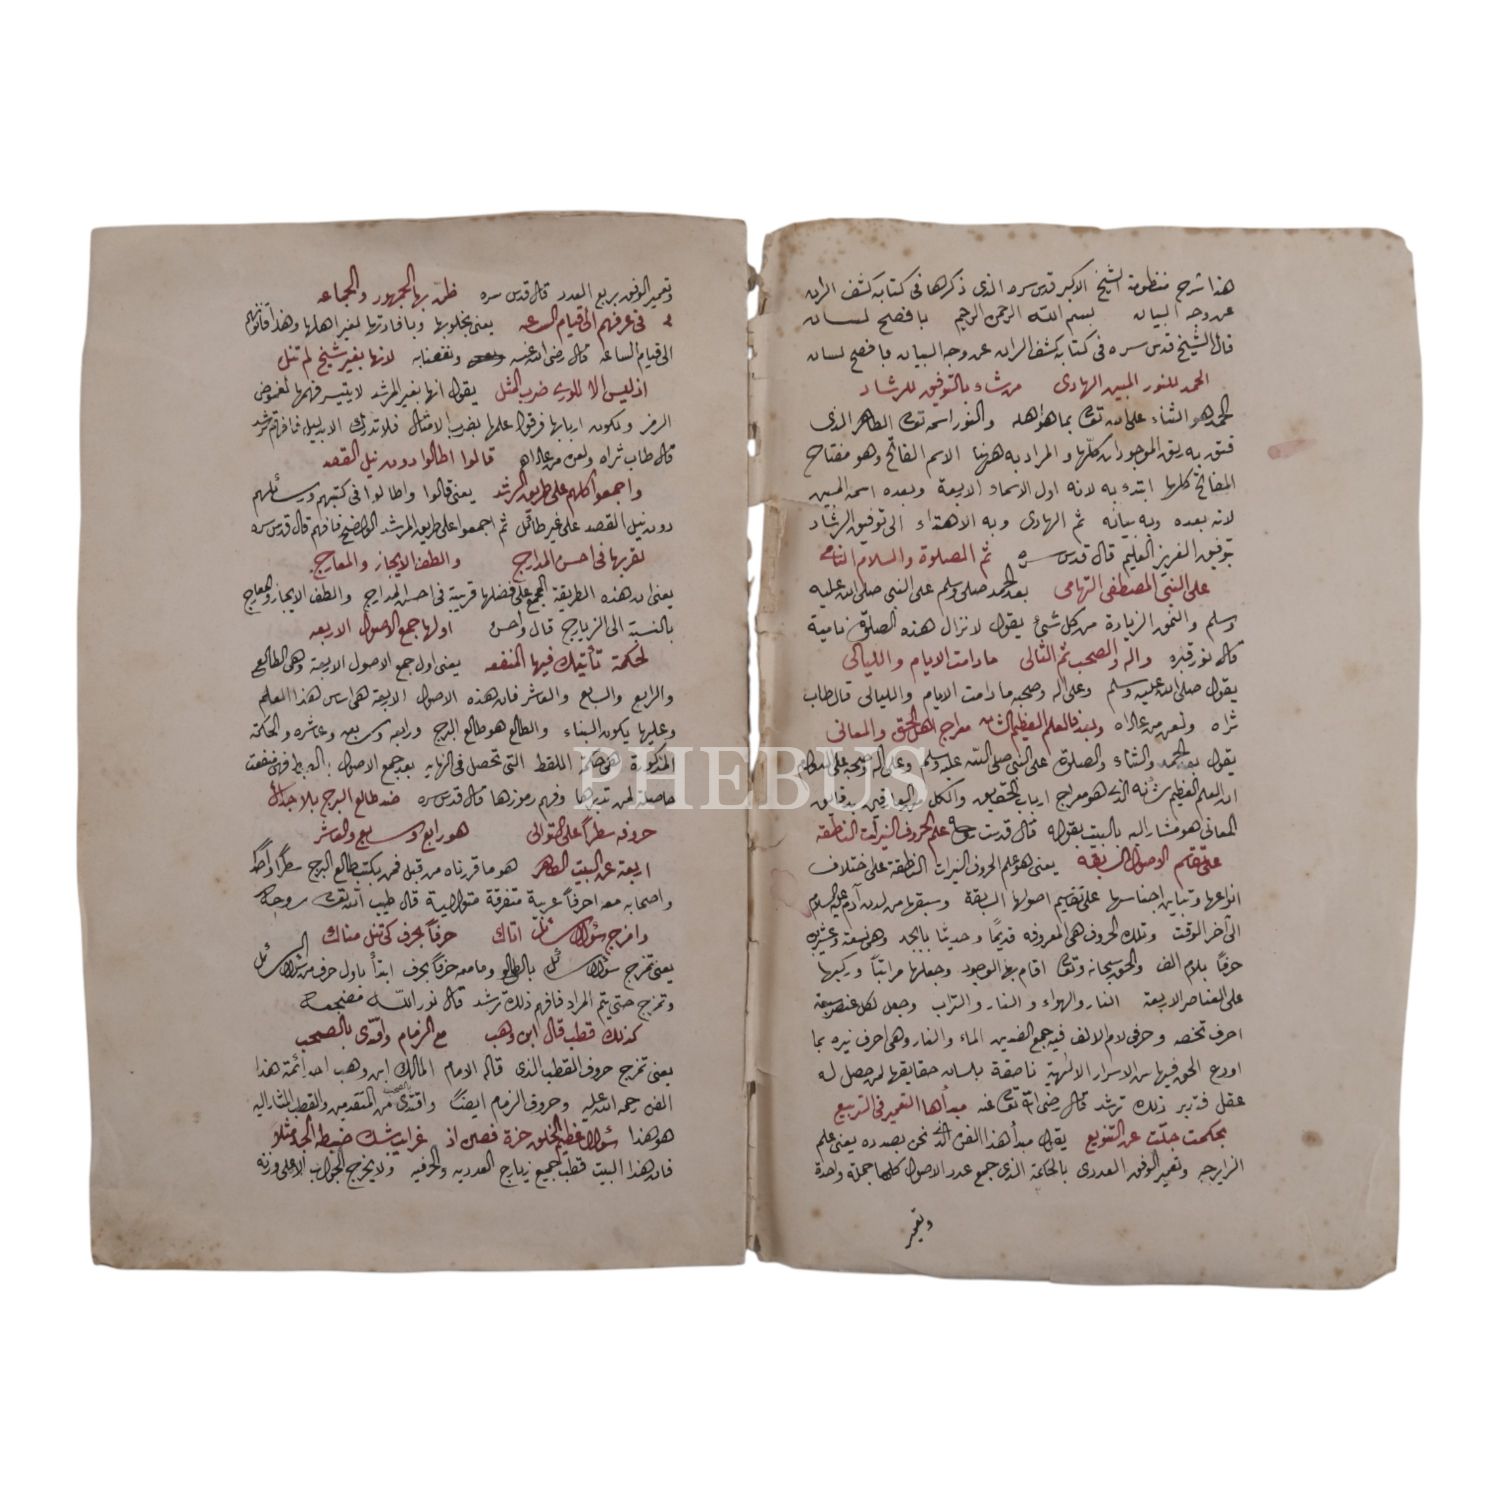 هذا شرح منظومة الشيخ الاكبر قدس سره الذى ذكرها فى كتابه كشف الران
عن وجه البيان بسم الله الرحمن الرحيم بافصح لسان
قال الشيخ قدس سره فى كتابه كشف الران عن وجه البيان بافصح لسان
الحمد للنور المبين الهادى من شاء بالتوفيق للرشاد
الحمد هو الثناء على الله تعالى بما هو اهله والنور اسمه تعالى الظاهر الذى
فتق به رتق الموجودات كلها والمراد به ههنا الاسم الفاتح وهو مفتاح
المفاتح كلها ابتدء به لانه اول الاسماء الاربعة وبعده اسمه المبين
لانه بعده وبه بيانه ثم الهادى وبه الاهتداء الى توفيق الرشاد
بتوفيق العزيز العليم قال قدس سره ثم الصلوة والسلام النامى
على النبى المصطفى التهامى بعد الحمد صلى وسلم على النبى صلى الله عليه
وسلم والنمو الزيادة من كل شئ يقول لا تزال هذه الصلوة نامية
قال نور قبره واله والصحب ثم التالى مادامت الايام والليالى
يقول صلى الله عليه وسلم وعلى اله وصحبه مادامت الايام والليالى قال طاب
ثراه ولعن من عاداه وبعد فالعلم العظيم الشان معراج اهل الحق والمعانى
يقول بعد الحمد والثناء والصلوة على النبى صلى الله عليه وسلم وعلى اله وصحبه على الدوام
ان العلم العظيم شأنه الذى هو معراج ارباب الحقايق
المعانى هو مشار اليه بالبيت بقوله قال قدس سره علم الحروف النيرات الناطقه
على تقاسيم الاصول السابقه يعنى هو علم الحروف النيرات الناطقة على ختلاف
انواعها وتباين اجناسها على تقاسيم اصولها السابقة وسبقها من لدن آدم عليه السلام
الى آخر الوقت وتلك الحروف هى المعروفه قديمًا وحديثا بابجد وهى تسعة وعشرون
حرفًا بلام الف والحق سبحانه وتعالى اقام بها الوجود وجعلها مراتبًا وركبها
على العناصر الاربعة النار والهواء والنار والتراب وجعل لكل عنصر سبعة
احرف تخصه وحرف لام الالف فيه جمع الضدين الماء والنار وهى احرف نيره بما
اودع الحق فيها من الاسرار الالهية ناطقة بلسان حقايقها لمن حصل له
عقل فتدبر ذلك ترشد قال رضى الله تعالى عنه مبدأها التعمير فى التربيع
بحكمت جلّت عن التنويع يقول مبدأ هذا الفن الذى نحن بصدده يعنى علم
الزايرجه وتعمير الوفق العددى بالحكمة الذى جمع عدد الاصول كلها جملة واحدة
وتعمير
وتعمير الوفق بربع العدد قال قدس سره ظن بها الجمهور والجماعه
فى عرفهم الى قيام الساعه يعنى بخلوبها وبافادتها لغير اهلها وهذا قانونهم
الى قيام الساعه قال رضى الله عنه ونفعنا به لانها بغير شيخ لم تنل
اذ ليس الا للورى ضرب المثل يقول انها بغير المرشد لا يتيسر فهمها لغموض
الرمز ولكون اربابها فرقوا علمها بضرب الامثال فلا تدرك الا بدليل فافهم ترشد
قال طاب ثراه ولعن من عاداه قالوا اطالوا دون نيل القصد
واجمعوا كلهم على طريق الرشد يعنى قالوا واطالوا فى كتبهم ورسائلهم
دون نيل القصد على غير طائل ثم اجمعوا على طريق المرشد الواضح فافهم قال قدس سره
لقربها فى احسن المدارج والطف الايجاز والمعارج
يعنى ان هذه الطريقة المجمع على فضلها قريبة فى احسن المدارج والطف الايجاز والمعارج
بالنسبة الى الزيارج قال واحسن اولها جمع الاصول الاربعه
لحكمة تأتيك فيها المنفعه يعنى اول جمع الاصول الاربعة وهى الطالع
والرابع والسابع والعاشر فان هذه الاصول الاربعة هى اس هذا العلم
وعليها يكون البناء والطالع هو طالع البرج ورابعه وسابعه وعاشره والحكمة
المذكورة هى حكمة اللقط التى تحصل فى النهايه بعد جمع الاصول
حاصلة لمن تدبرها وفهم رموزها قال قدس سره خذ طالع البرج بلا جدال
حروفه سطرًا على التوالى هو رابع وسابع والعاشر
اربعة عن البيت الظاهر هو ما قررناه من قبل فمن يكتب طالع البرج سطرًا واحدًا
واصحابه معه احرفًا عربية متفرقة متوالية قال طيب الله تعالى روحه
وامزج سؤال السائل اتاك حرفًا بحرف كى تنل مناك
يعنى تمزج سؤال السائل بالطالع وما معه حرفًا بحرف ابتدأ باول حرف من سؤال السائل
وتمزج حتى يتم المراد فافهم ذلك ترشد قال نور الله مضجعه
كذلك قطب قال ابن وهب مع الزمام واقتدى بالصحب
يعنى تمزج حروف القطب الذى قاله الامام المالك ابن وهب احد ائمة هذا
الفن رحمه الله عليه وحروف الزمام ايضًا واقتدى بالصحب من المتقدمين والقطب المشار اليه
هو هذا سؤال عظيم الخلق حزة فصن اذ غرائب شك ضبطه الجد مثلا
فان هذا البيت قطب لجميع زيارج العدديه والحرفيه ولا يخرج الجواب الا على وزنه
PHEBUS